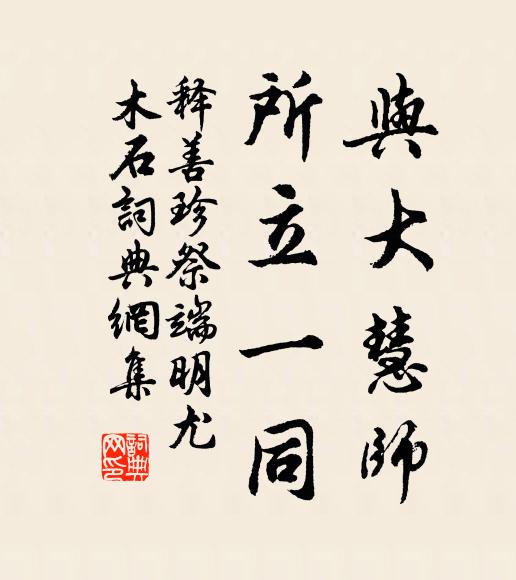 與大慧師
所立一同
释善珍祭端明尤
木石詞典網集
詞典網印